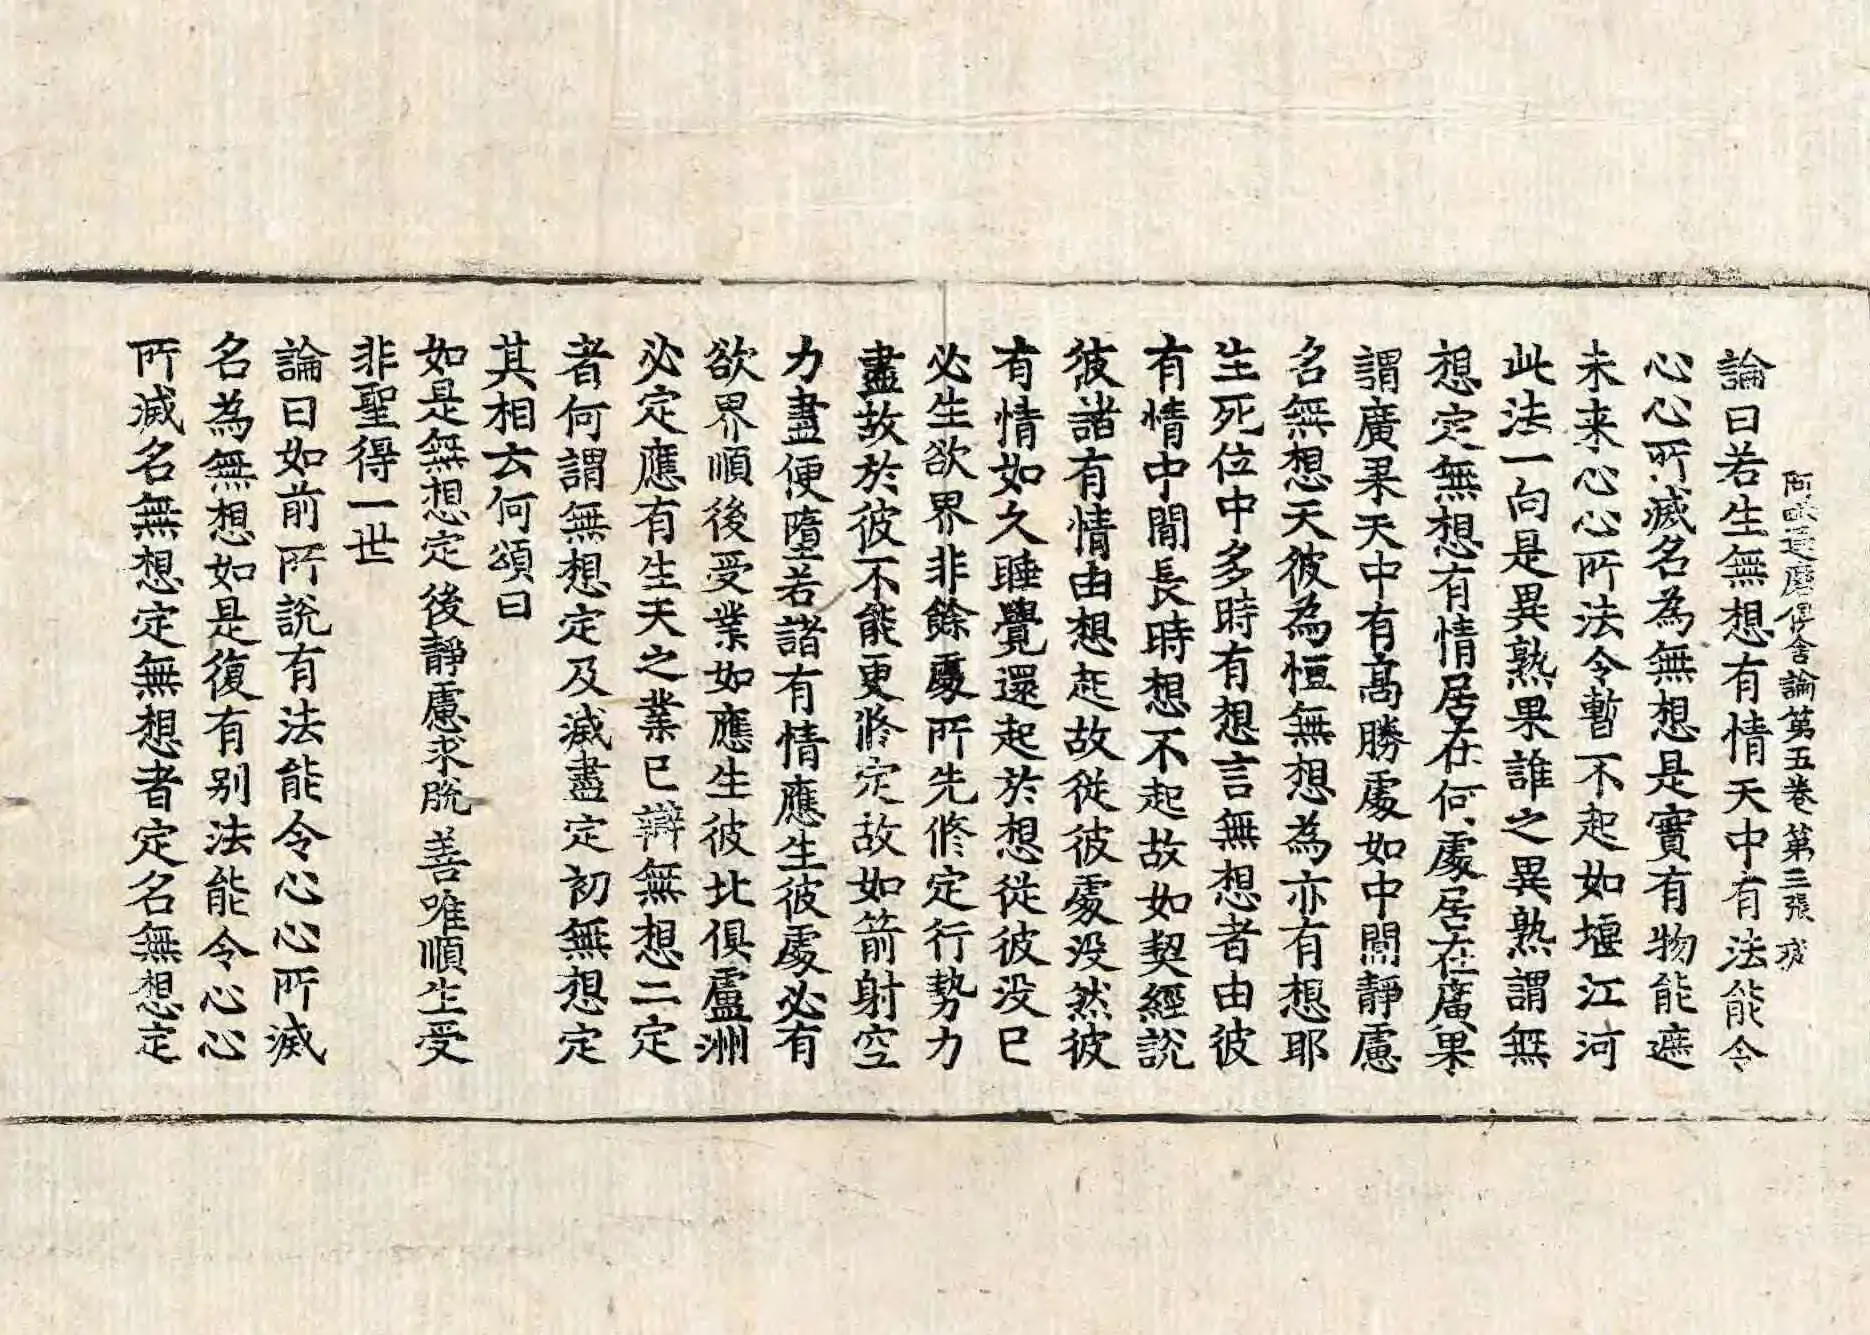 阿毗達磨俱舍論第五卷第三張
論曰若生無想有情天中有法能令
心心所滅名為無想是實有物能遮
未来心心所法令暫不起如堰江河
此法一向是異熟果誰之異熟謂無
想定無想有情居在何處居在廣果
謂廣果天中有高勝處如中閒靜慮
名無想天彼為恒無想為亦有想耶
生死位中多時有想言無想者由彼
有情中閒長時想不起故如契經說
彼諸有情由想起故從彼處没然彼
有情如久睡覺還起於想從彼没已
必生欲界非餘處所先修定行勢力
盡故於彼不能更修定故如箭射空
力盡便墮若諸有情應生彼處必有
欲界順後受業如應生彼北俱盧洲
必定應有生天之業已辯無想二定
者何謂無想定及滅盡定初無想定
其相云何頌曰
如是無想定 後靜慮求脫 善唯順生受
非聖得一世
論曰如前所說有法能令心心所滅
名為無想如是復有别法能令心心
所滅名無想定無想者定名無想定